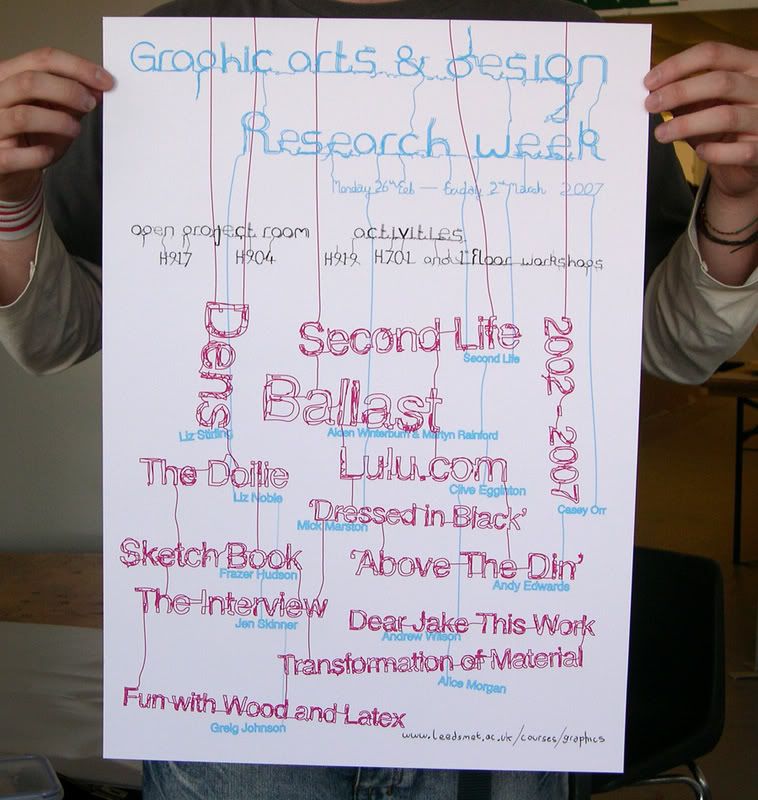 Graphic arts & design
Research week
Monday 26th Feb — Friday 2nd March 2007
open project room
activities
H917 H904
H919 H701 and 1st floor workshops
Dens
Liz Stirling
Second Life
Second Life
2002-2007
Casey Orr
Ballast
Aiden Winterburn & Martyn Rainford
The Doilie
Liz Noble
Lulu.com
Clive Egginton
'Dressed in Black'
Mick Marston
Sketch Book
Frazer Hudson
'Above The Din'
Andy Edwards
The Interview
Jen Skinner
Dear Jake This Work
Andrew Wilson
Transformation of Material
Alice Morgan
Fun with Wood and Latex
Greig Johnson
www.leedsmet.ac.uk/courses/graphics